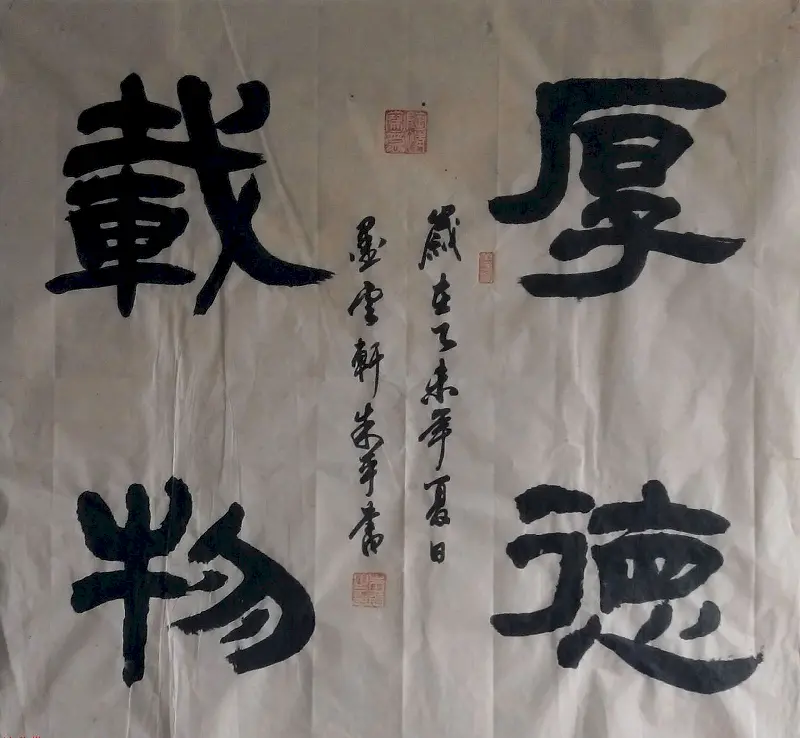 厚德
載物
歲在乙未年夏日
墨雲軒朱平書